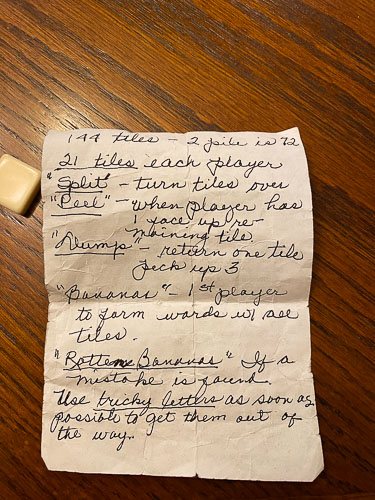 144 tiles - 2 pile is 72
21 tiles each player
"Split" - turn tiles over
"Peel" - when player has
1 face up re-
maining tile
"Dump" - return one tile
pick up 3
"Bananas" - 1st player
to form words w/ all
tiles.
"Rotten Bananas" If a
mistake is found.
Use tricky letters as soon as
possible to get them out of
the way.